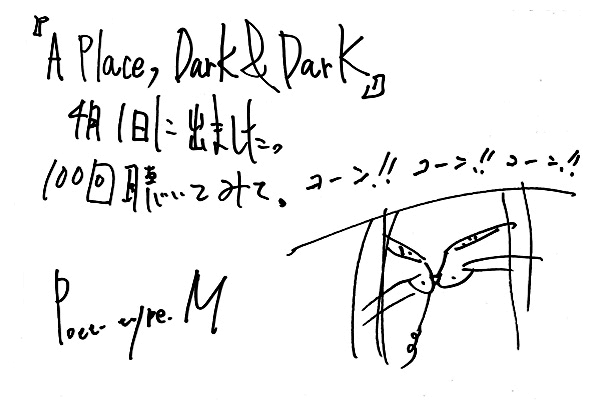 『A Place, Dark & Dark』
4月1日に出ました。
100回聴いてみて。
コーン!! コーン!! コーン!!
Poet-type.M